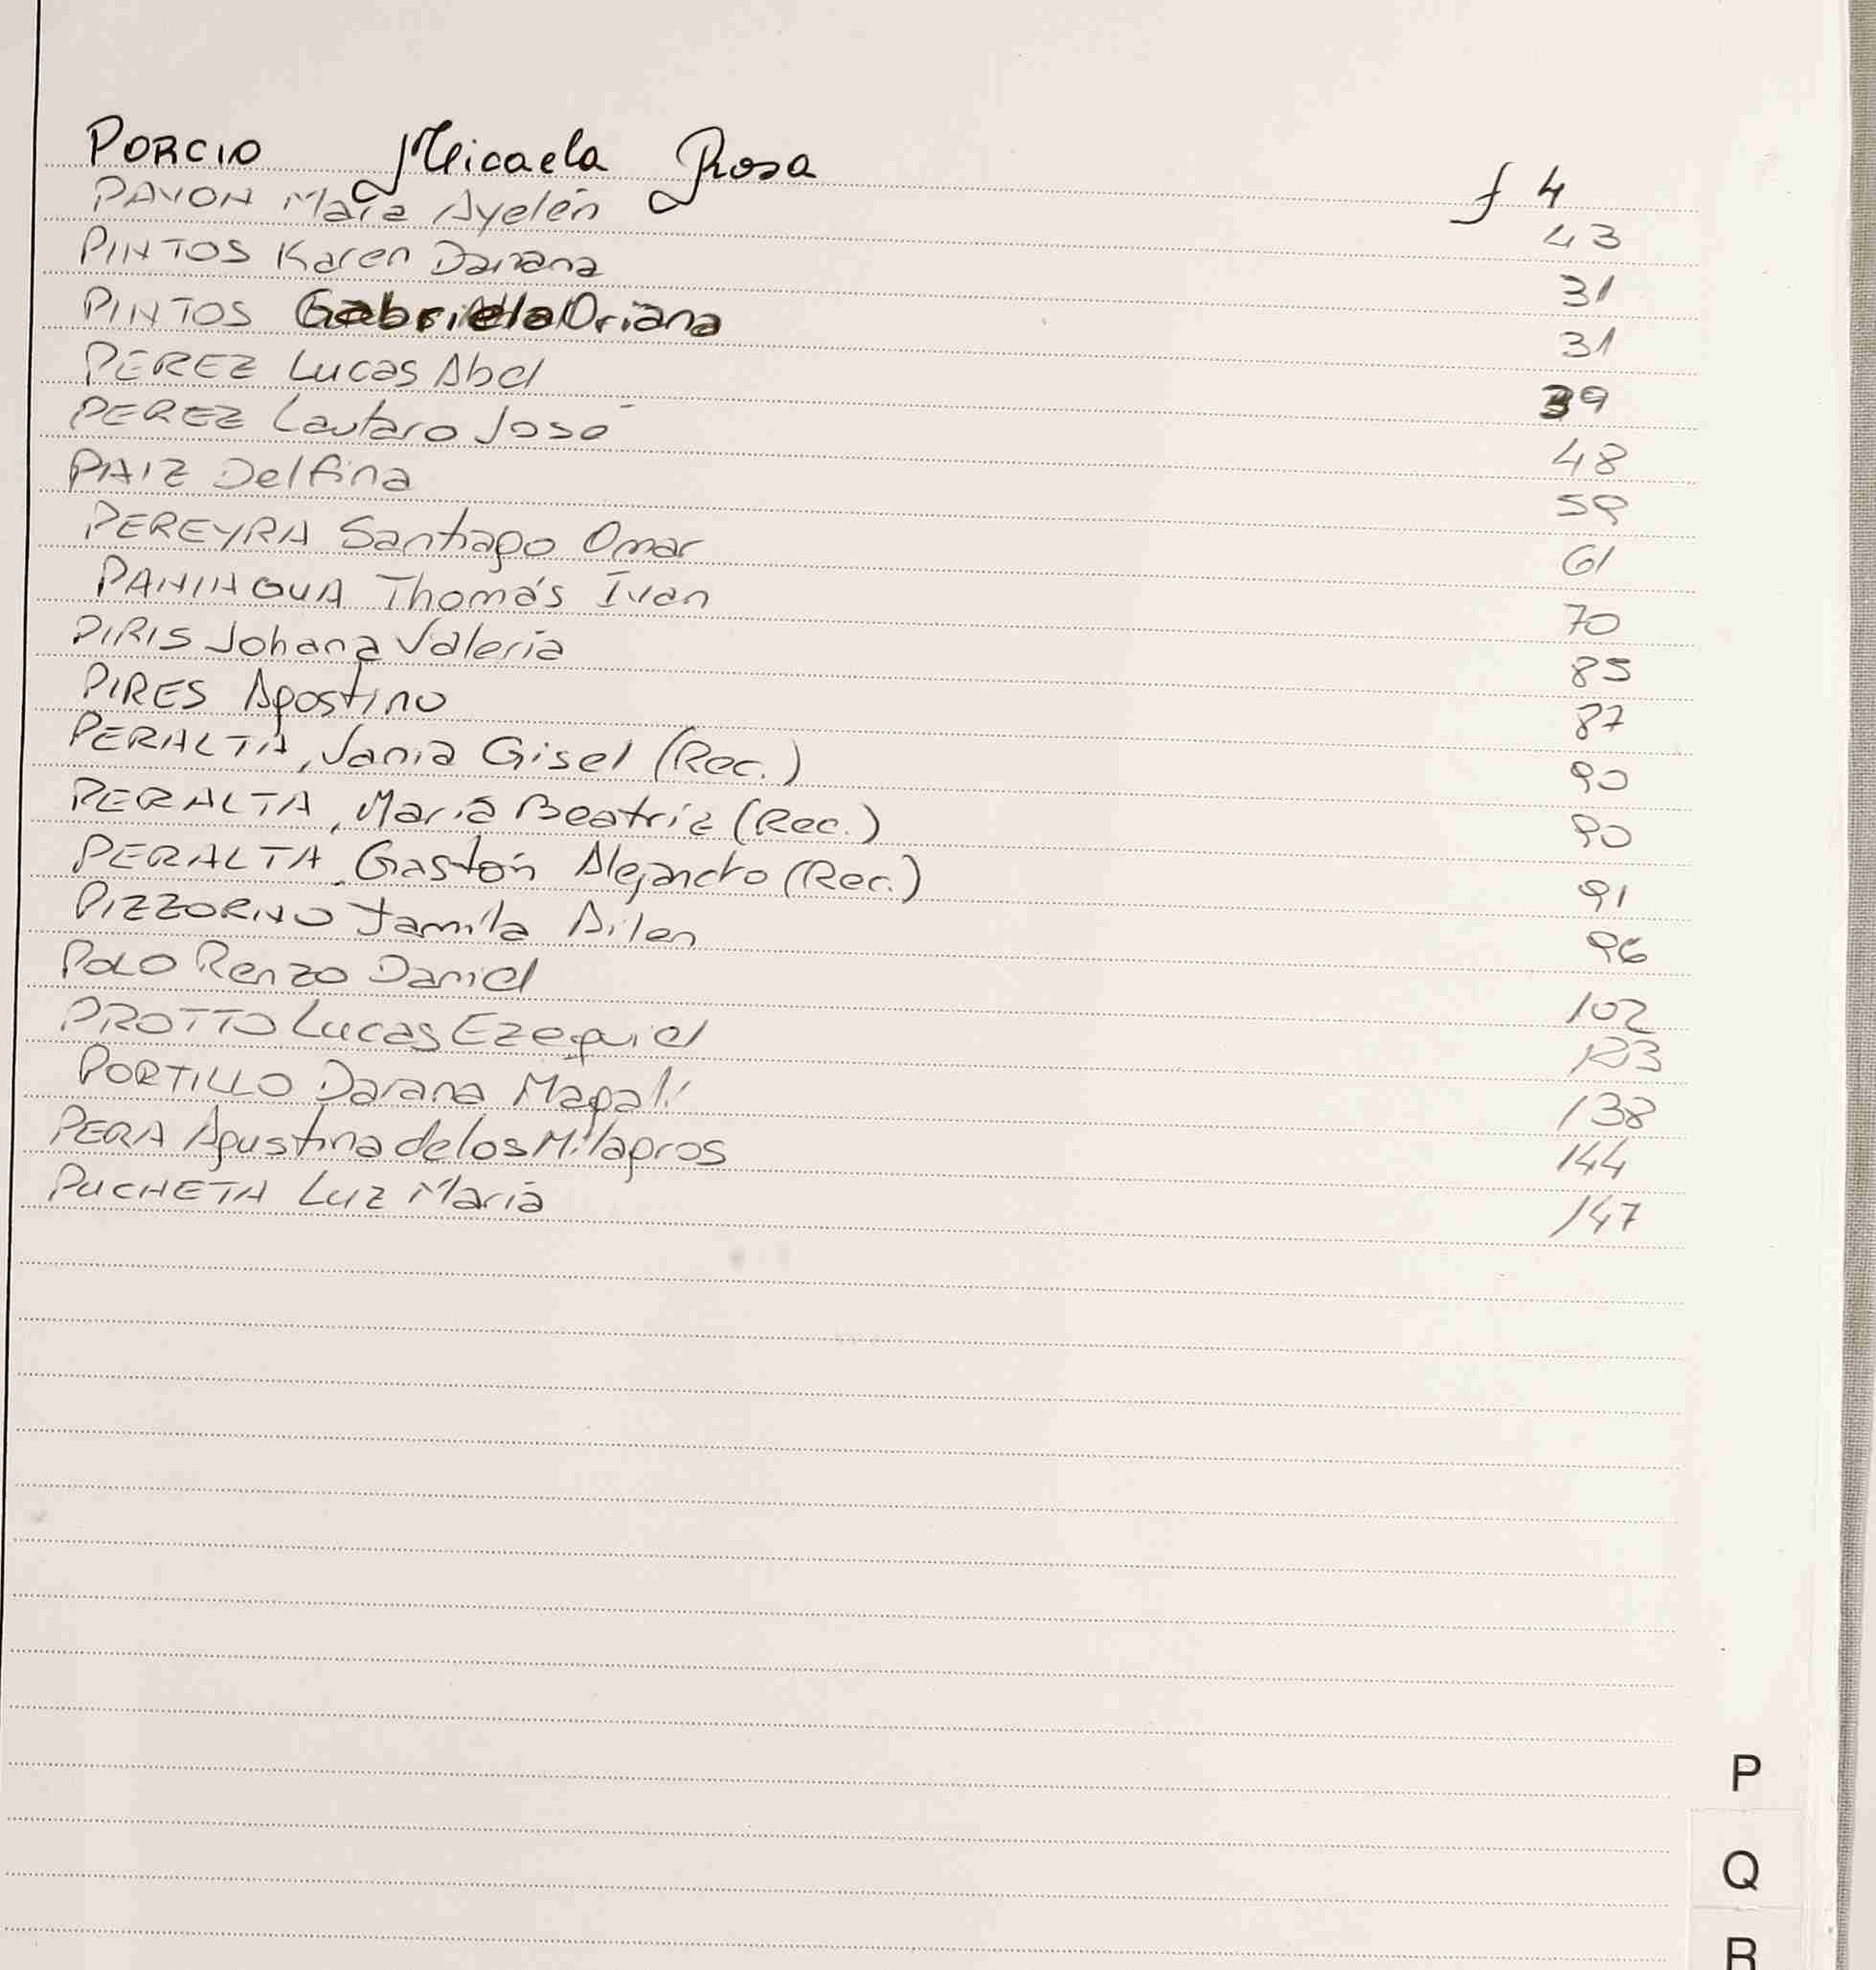 PORCIO Micaela Rosa f 4
PAVON Maia Ayelén 43
PINTOS Karen Daiana 31
PINTOS Gabriela Oriana 31
PEREZ Lucas Abel 39
PEREZ Lautaro José 48
PAIZ Delfina 59
PEREYRA Santiago Omar 61
PANIAGUA Thomás Ivan 70
PIRIS Johana Valeria 85
PIRES Agostino 87
PERALTA, Vania Gisel (Rec.) 90
PERALTA, María Beatriz (Rec.) 90
PERALTA, Gastón Alejandro (Rec.) 91
PIZZORNO Jamila Ailen 96
POLO Renzo Daniel 102
PROTTO Lucas Ezequiel
PORTILLO Daiana Magalí 138
PERA Agustina de los Milagros 144
PUCHETA Luz María 147
P
Q
R